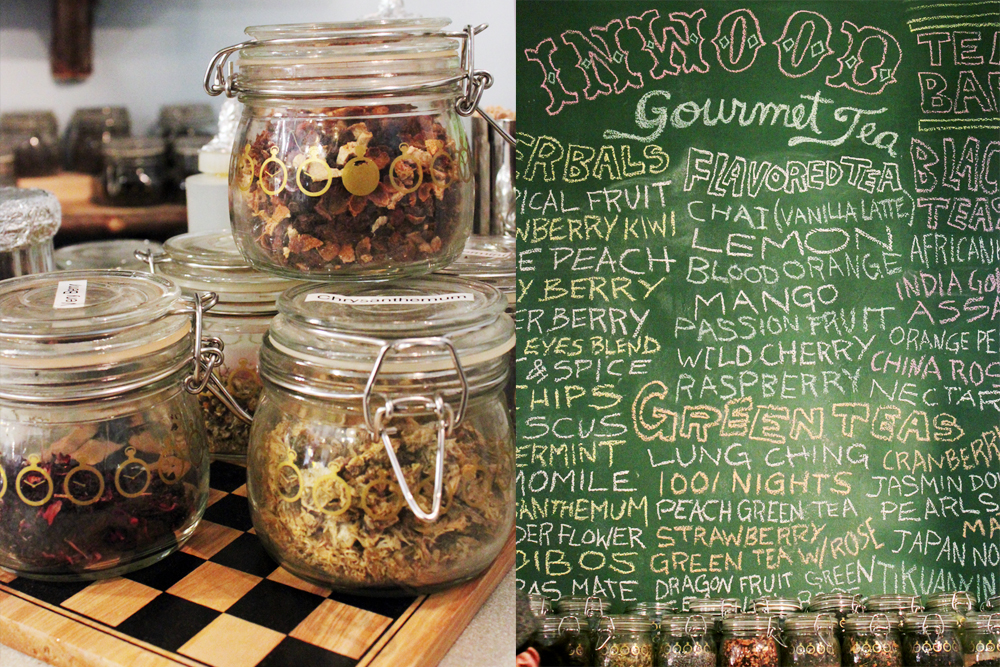 Chrysanthemum
INWOOD
Gourmet Tea
ERBALS
PICAL FRUIT
NBERRY KIWI
E PEACH
Y BERRY
ER BERRY
EYES BLEND
& SPICE
HIPS
ISCUS
ERMINT
MOMILE
ANTHEMUM
DER FLOWER
OIBOS
BAS MATE
FLAVORED TEA
CHAI (VANILLA LATTE)
LEMON
BLOOD ORANGE
MANGO
PASSION FRUIT
WILD CHERRY
RASPBERRY
GREEN TEAS
LUNG CHING
1001 NIGHTS
PEACH GREEN TEA
STRAWBERRY
GREEN TEA W/ROSE
DRAGON FRUIT GREEN
TEA
BAR
BLAC
TEAS
AFRICAN
INDIA GO
ASSA
ORANGE PE
CHINA ROS
NECTAR
CRANBERR
JASMIN DO
PEARLS
MA
JAPAN NO
TIKUANYIN